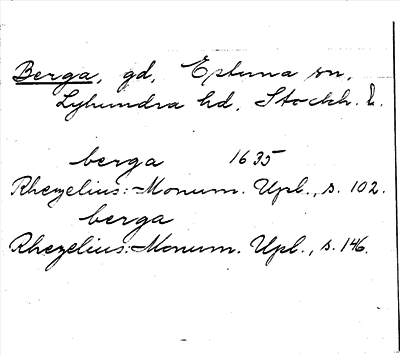 Berga, gd, Estuna sn,
Lyhundra hd, Stockh. l.
berga 1635
Rhezelius: Monum. Upl., s. 102.
berga
Rhezelius: Monum. Upl., s. 146.